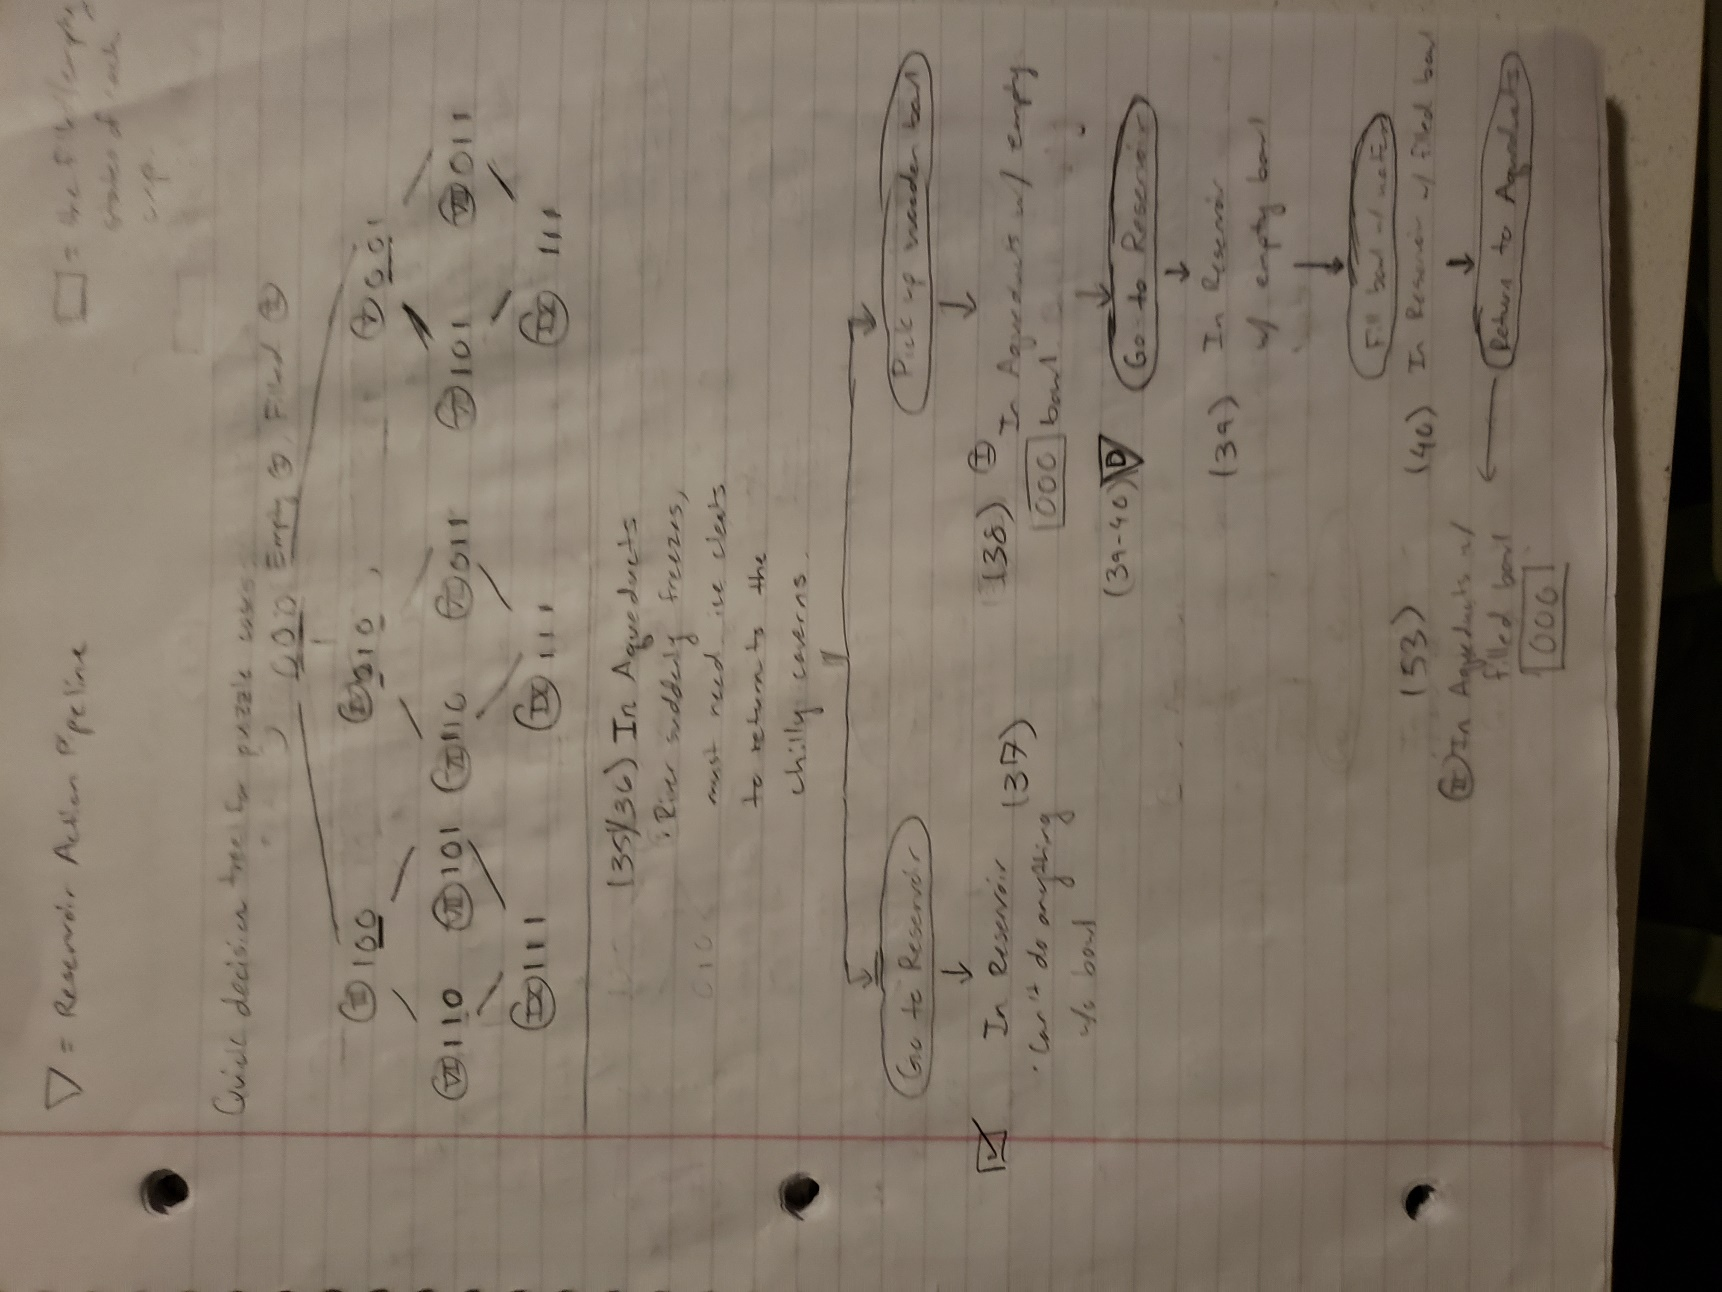 ▽ = Reservoir Action Pipeline
□ = the filled/empty
states of each
cup.
Quick decision tree for puzzle cases
000 Empty ①, Filled ②
100
010
001
VI 110
VII 101
VI 110
011
101
VIII 011
IX 111
IX 111
IX 111
(35/36) In Aqueducts
River suddenly freezes,
must need ice cleats
to return to the
chilly caverns.
010
Go to Reservoir
Pick up wooden bowl
In Reservoir (37)
· Can't do anything
w/o bowl
(38) I In Aqueducts w/ empty
000 bowl
(39-40) D Go to Reservoir
(39) In Reservoir
w/ empty bowl
Fill bowl w/ water
(40) In Reservoir w/ filled bowl
Return to Aqueducts
(53)
II In Aqueducts w/
filled bowl
000